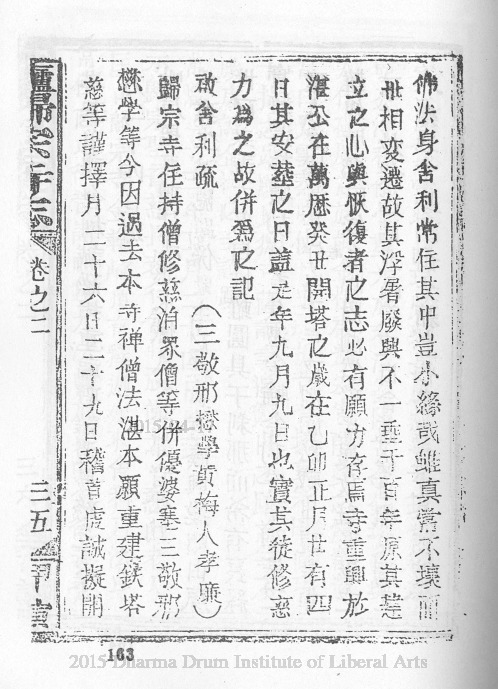 佛法身舍利常住其中豈小緣哉雖真常不壞而
世相変遷故其浮屠廢興不一垂千百年原其建
立之心與恢復者之志必有願力存焉寺重興於
湛公在萬曆癸丑開塔之歲在乙卯正月廿有四
日其安塟之日蓋是年九月九日也實其徒修慈
力為之故併為之記
啟舍利疏　(三敬邢懋學黃梅人孝廉)
歸宗寺住持僧修慈洎眾僧等併優婆塞三敬邢
懋學等今因過去本寺禪僧法湛本願重建鉄塔
慈等謹擇月二十六日二十九日稽首虔誠擬開
廬歸宗寺志
卷之二
三五
163
2015 Dharma Drum Institute of Liberal Arts